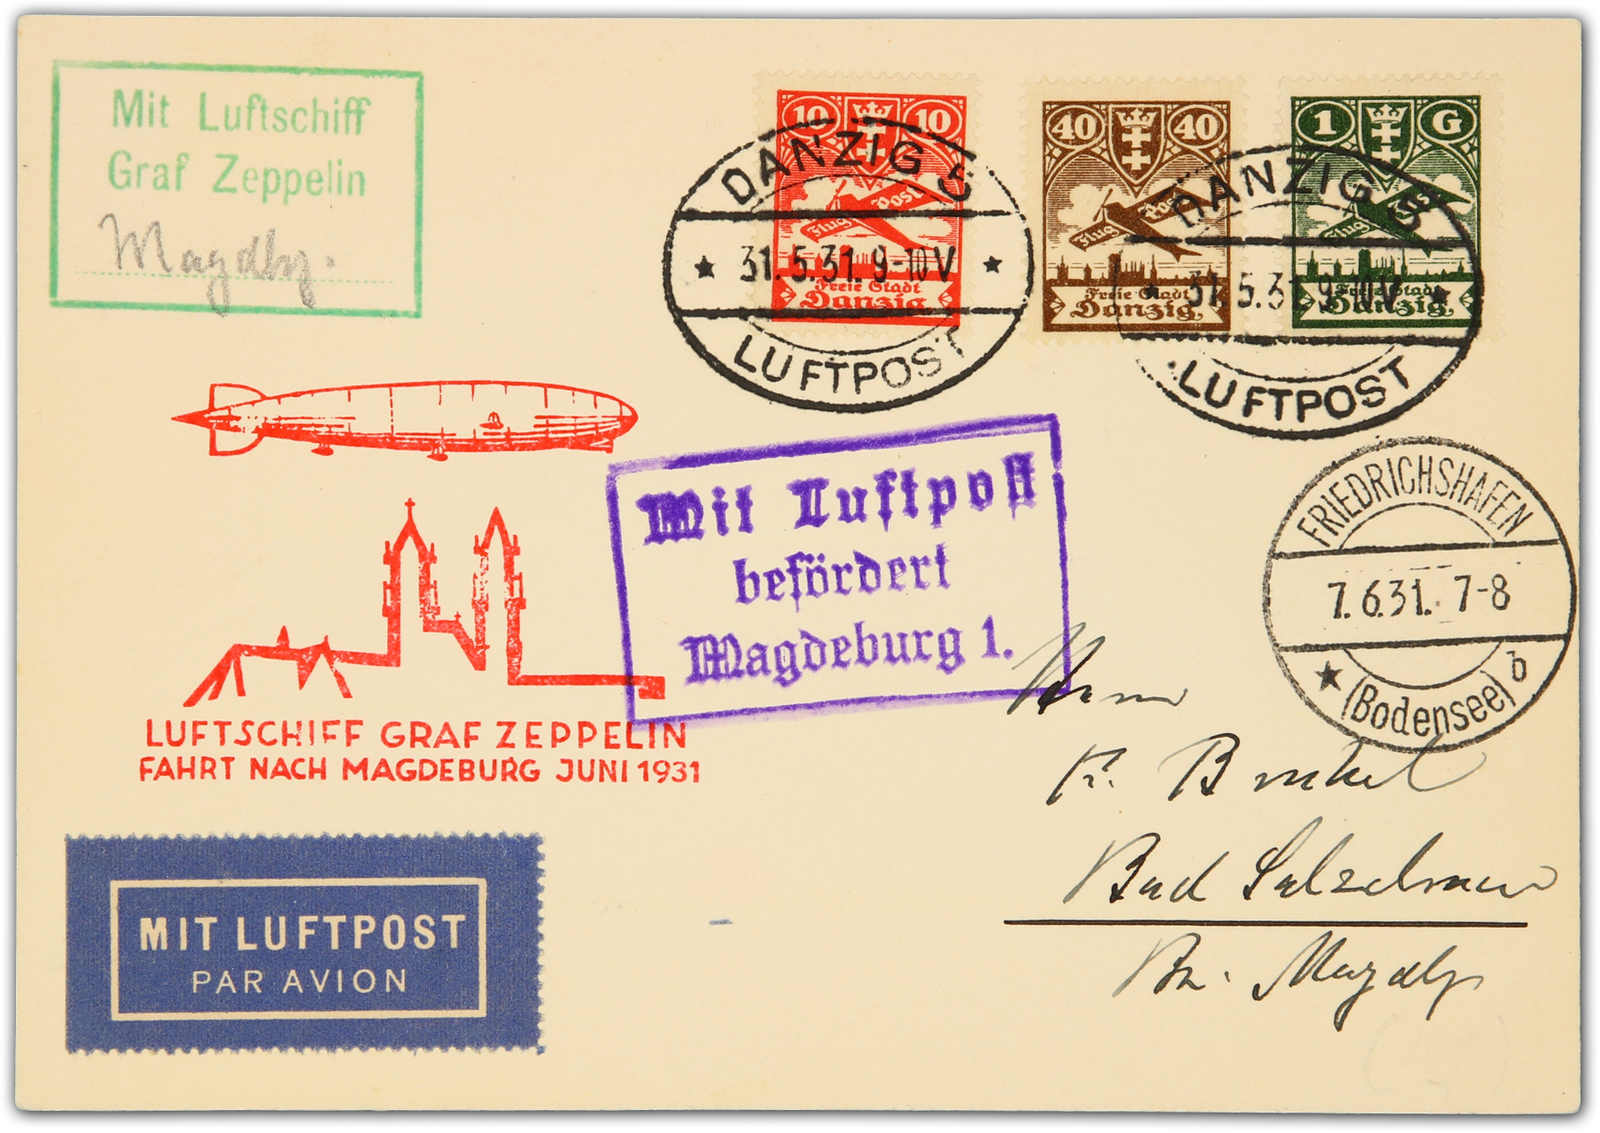 Mit Luftschiff
Graf Zeppelin
Magdbg.
10 10
Flug Post
Freie Stadt
Danzig
40 40
Flug Post
Freie Stadt
Danzig
1 G
Flug Post
Freie Stadt
Danzig
DANZIG 5
31.5.31.9-10V
LUFTPOST
DANZIG 5
31.5.31.9-10V
LUFTPOST
Mit Luftpost
befördert
Magdeburg 1.
FRIEDRICHSHAFEN
7.6.31. 7-8
(Bodensee) b
LUFTSCHIFF GRAF ZEPPELIN
FAHRT NACH MAGDEBURG JUNI 1931
Herrn
Bad Salzelmen
Bz. Magdbg
MIT LUFTPOST
PAR AVION